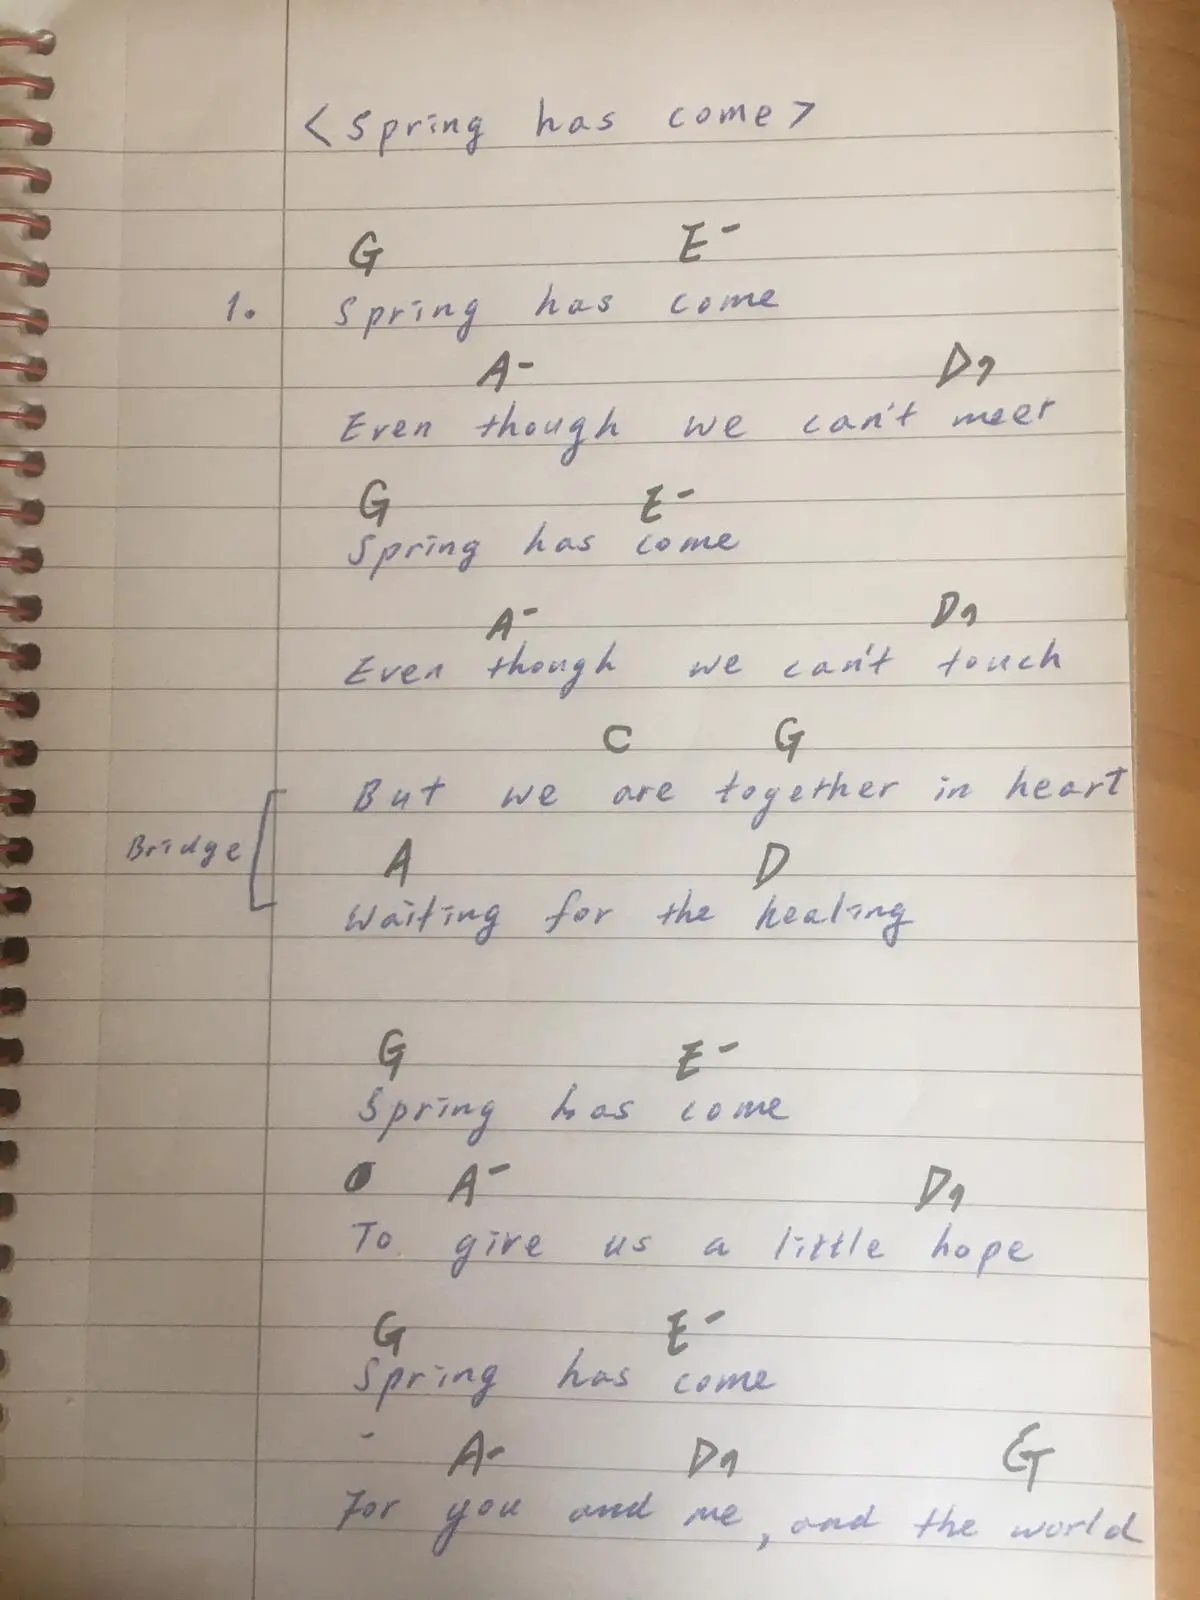 <Spring has come>
G E-
1. Spring has come
A- D7
Even though we can't meet
G E-
Spring has come
A- D7
Even though we can't touch
C G
But we are together in heart
Bridge
A D
Waiting for the healing
G E-
Spring has come
A- D7
To give us a little hope
G E-
Spring has come
A- D7 G
For you and me, and the world